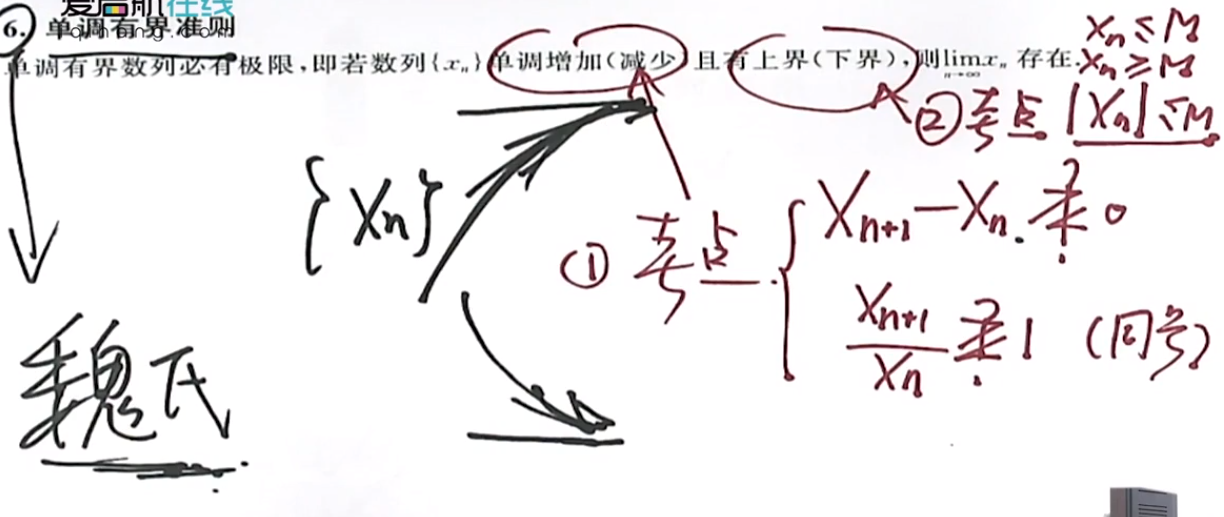 爱启航在线
qihang.com
6. 单调有界准则
单调有界数列必有极限,即若数列{xₙ}单调增加(减少)且有上界(下界),则lim xₙ 存在.
n→∞
xₙ ≤ M
xₙ ≥ M
② 考点 |Xₙ| ≤ M
{Xₙ}
① 考点
Xₙ₊₁ − Xₙ ≷ 0
Xₙ₊₁/Xₙ ≷ 1 (同号)
魏氏